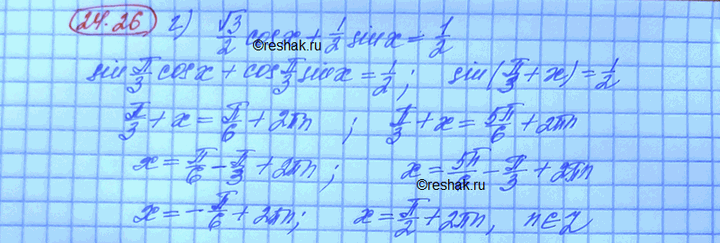 24.26 г) √3/2 cosx + 1/2 sinx = 1/2
©reshak.ru
sin π/3 cosx + cos π/3 sinx = 1/2; sin(π/3 + x) = 1/2
π/3 + x = π/6 + 2πn; π/3 + x = 5π/6 + 2πn
x = π/6 - π/3 + 2πn; x = 5π/6 - π/3 + 2πn
©reshak.ru
x = -π/6 + 2πn; x = π/2 + 2πn, n∈Z